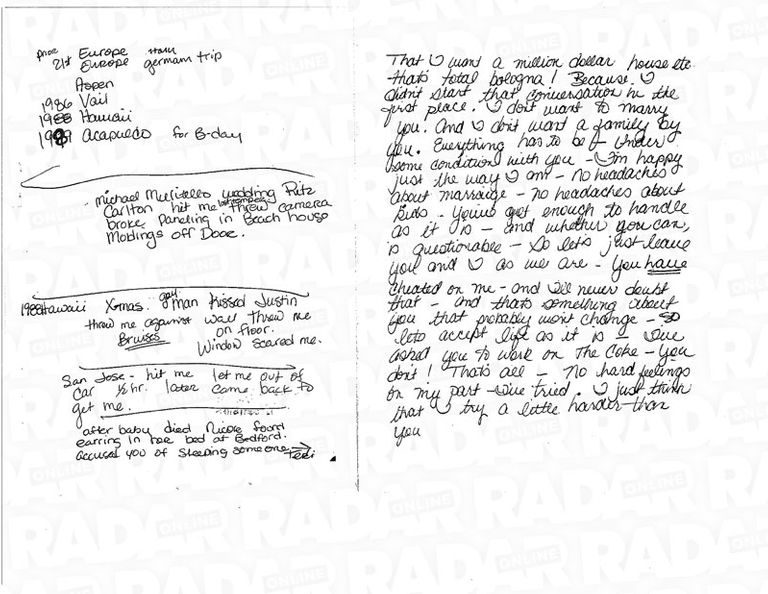 prior Europe Italy
21st Europe german trip
Aspen
1986 Vail
1988 Hawaii
1989 Acapulco for B-day
michael wedding Ritz
Carlton hit me threw camera
broke Paneling in Beach house
Moldings off Door.
1988 Hawaii X-mas. gay man kissed Justin
threw me against wall threw me
Bruises on floor.
Window scared me.
San Jose - hit me let me out of
car ½ hr. later came back to
get me.
after baby died Nicole found
earring in her bed at Bedford.
accused you of sleeping someone
Teri
That I want a million dollar house etc
thats total bologna! Because. I
didn't start that conversation in the
first place. I dont want to marry
you. And I dont want a family by
you. Everything has to be - under
some condition with you - I'm happy
just the way I am - no headaches
about marraige - no headaches about
kids - Youve got enough to handle
as it is - and whether you can,
is questionable - So lets just leave
you and I as we are - You have
cheated on me - and I'll never doubt
that - and thats something about
you that probably won't change - so
lets accept life as it is - I've
asked you to work on The Coke - you
don't! Thats all - No hard feelings
on my part - I've tried. I just think
that I try a little harder than
you
RADAR ONLINE